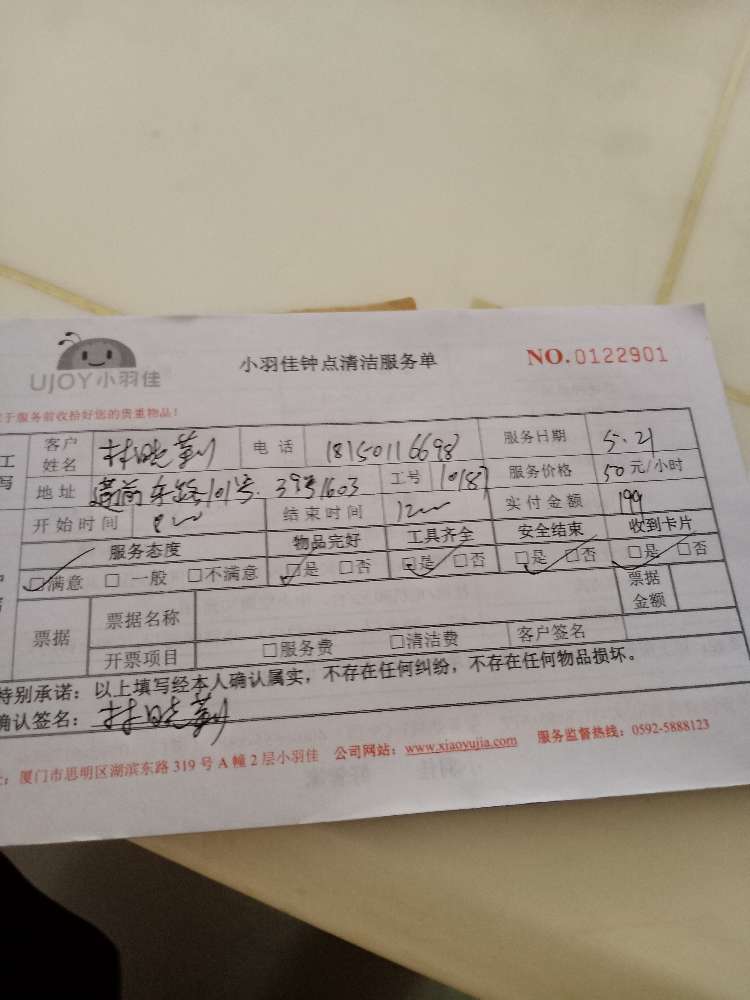 UJOY小羽佳
小羽佳钟点清洁服务单
NO.0122901
于服务前收拾好您的贵重物品！
工
写
客户姓名 林晓 电话 18150116698 服务日期 5.21
地址 莲前东路101号.39号1603 工号 10187 服务价格 50元/小时
开始时间 8 结束时间 12 实付金额 199
服务态度 物品完好 工具齐全 安全结束 收到卡片
□满意 □一般 □不满意 □是 □否 □是 □否 □是 □否 □是 □否
票据 票据名称 票据金额
开票项目 □服务费 □清洁费 客户签名
特别承诺：以上填写经本人确认属实，不存在任何纠纷，不存在任何物品损坏。
确认签名：林晓
：厦门市思明区湖滨东路319号A幢2层小羽佳 公司网站：www.xiaoyujia.com 服务监督热线：0592-5888123